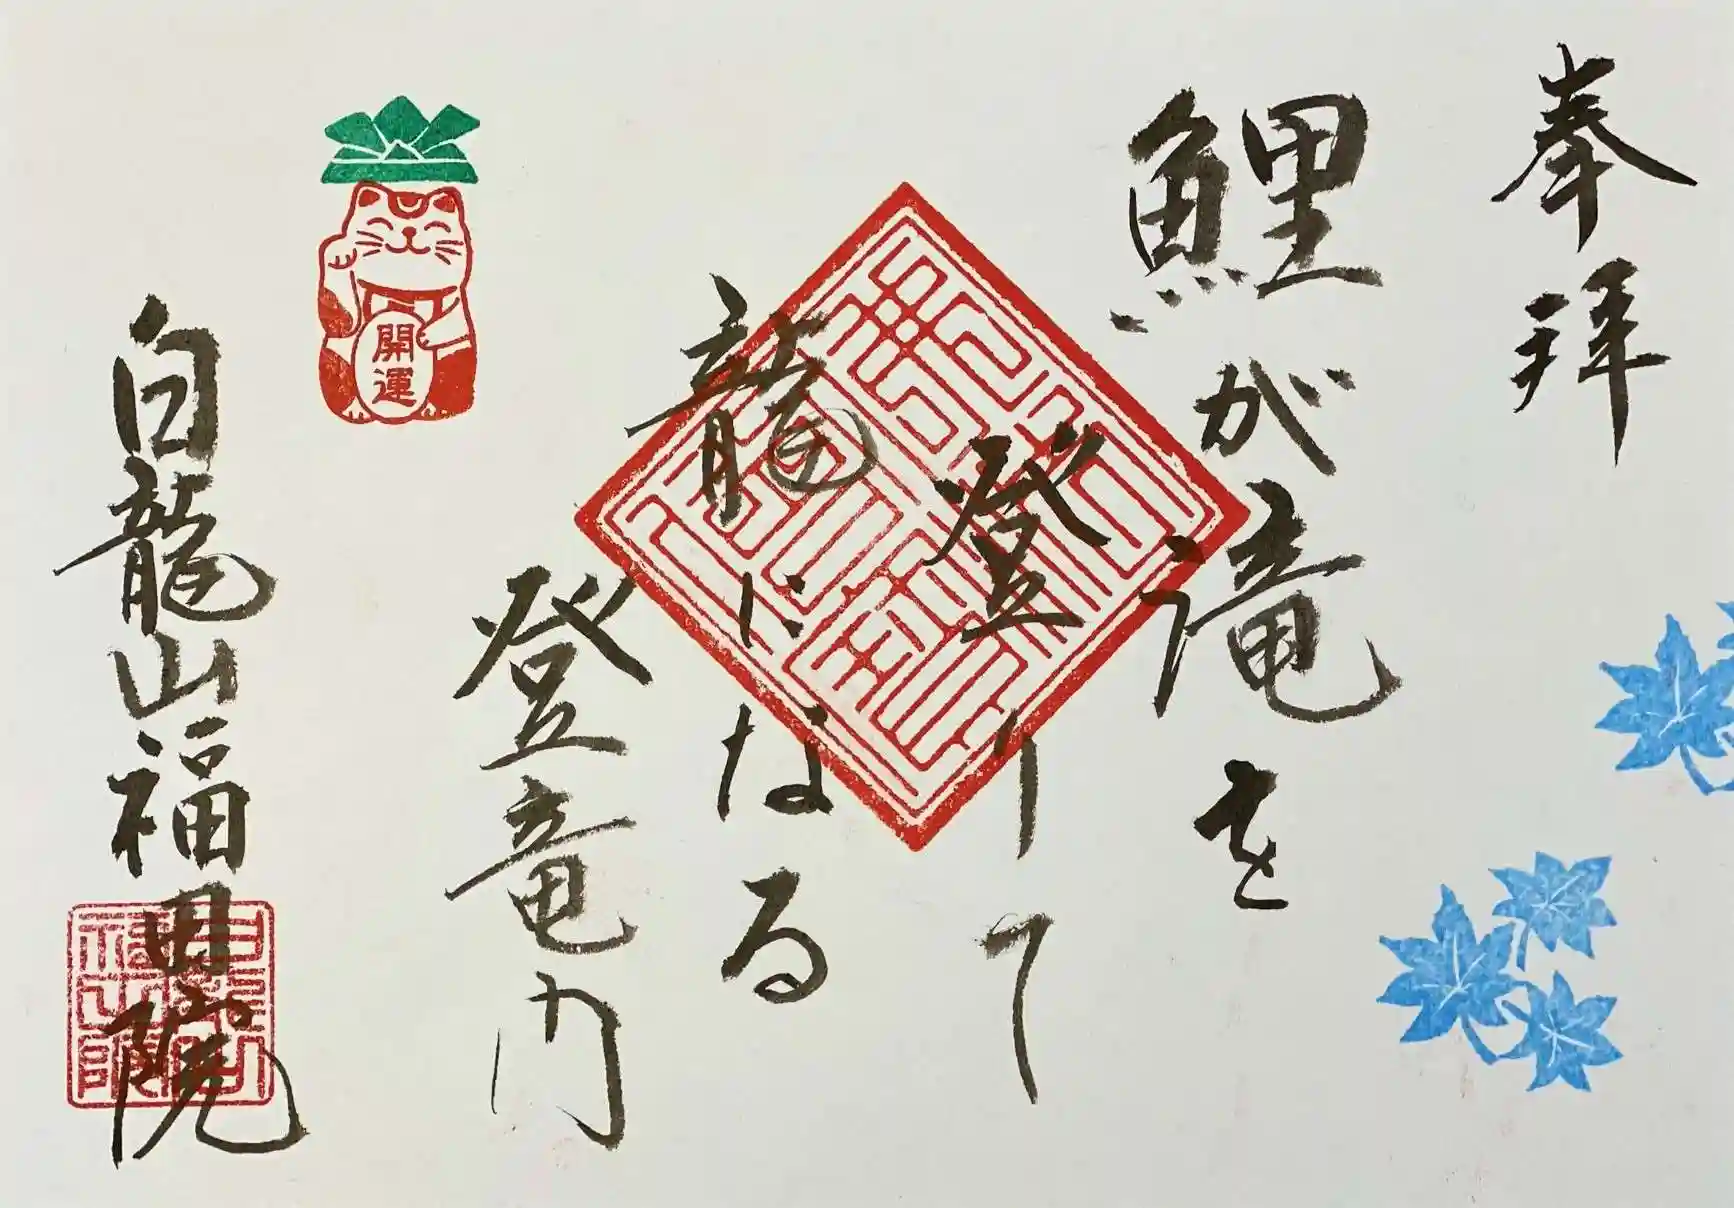 奉拝
鯉が滝を
登りて
龍になる
登竜門
開運
白龍山福田院